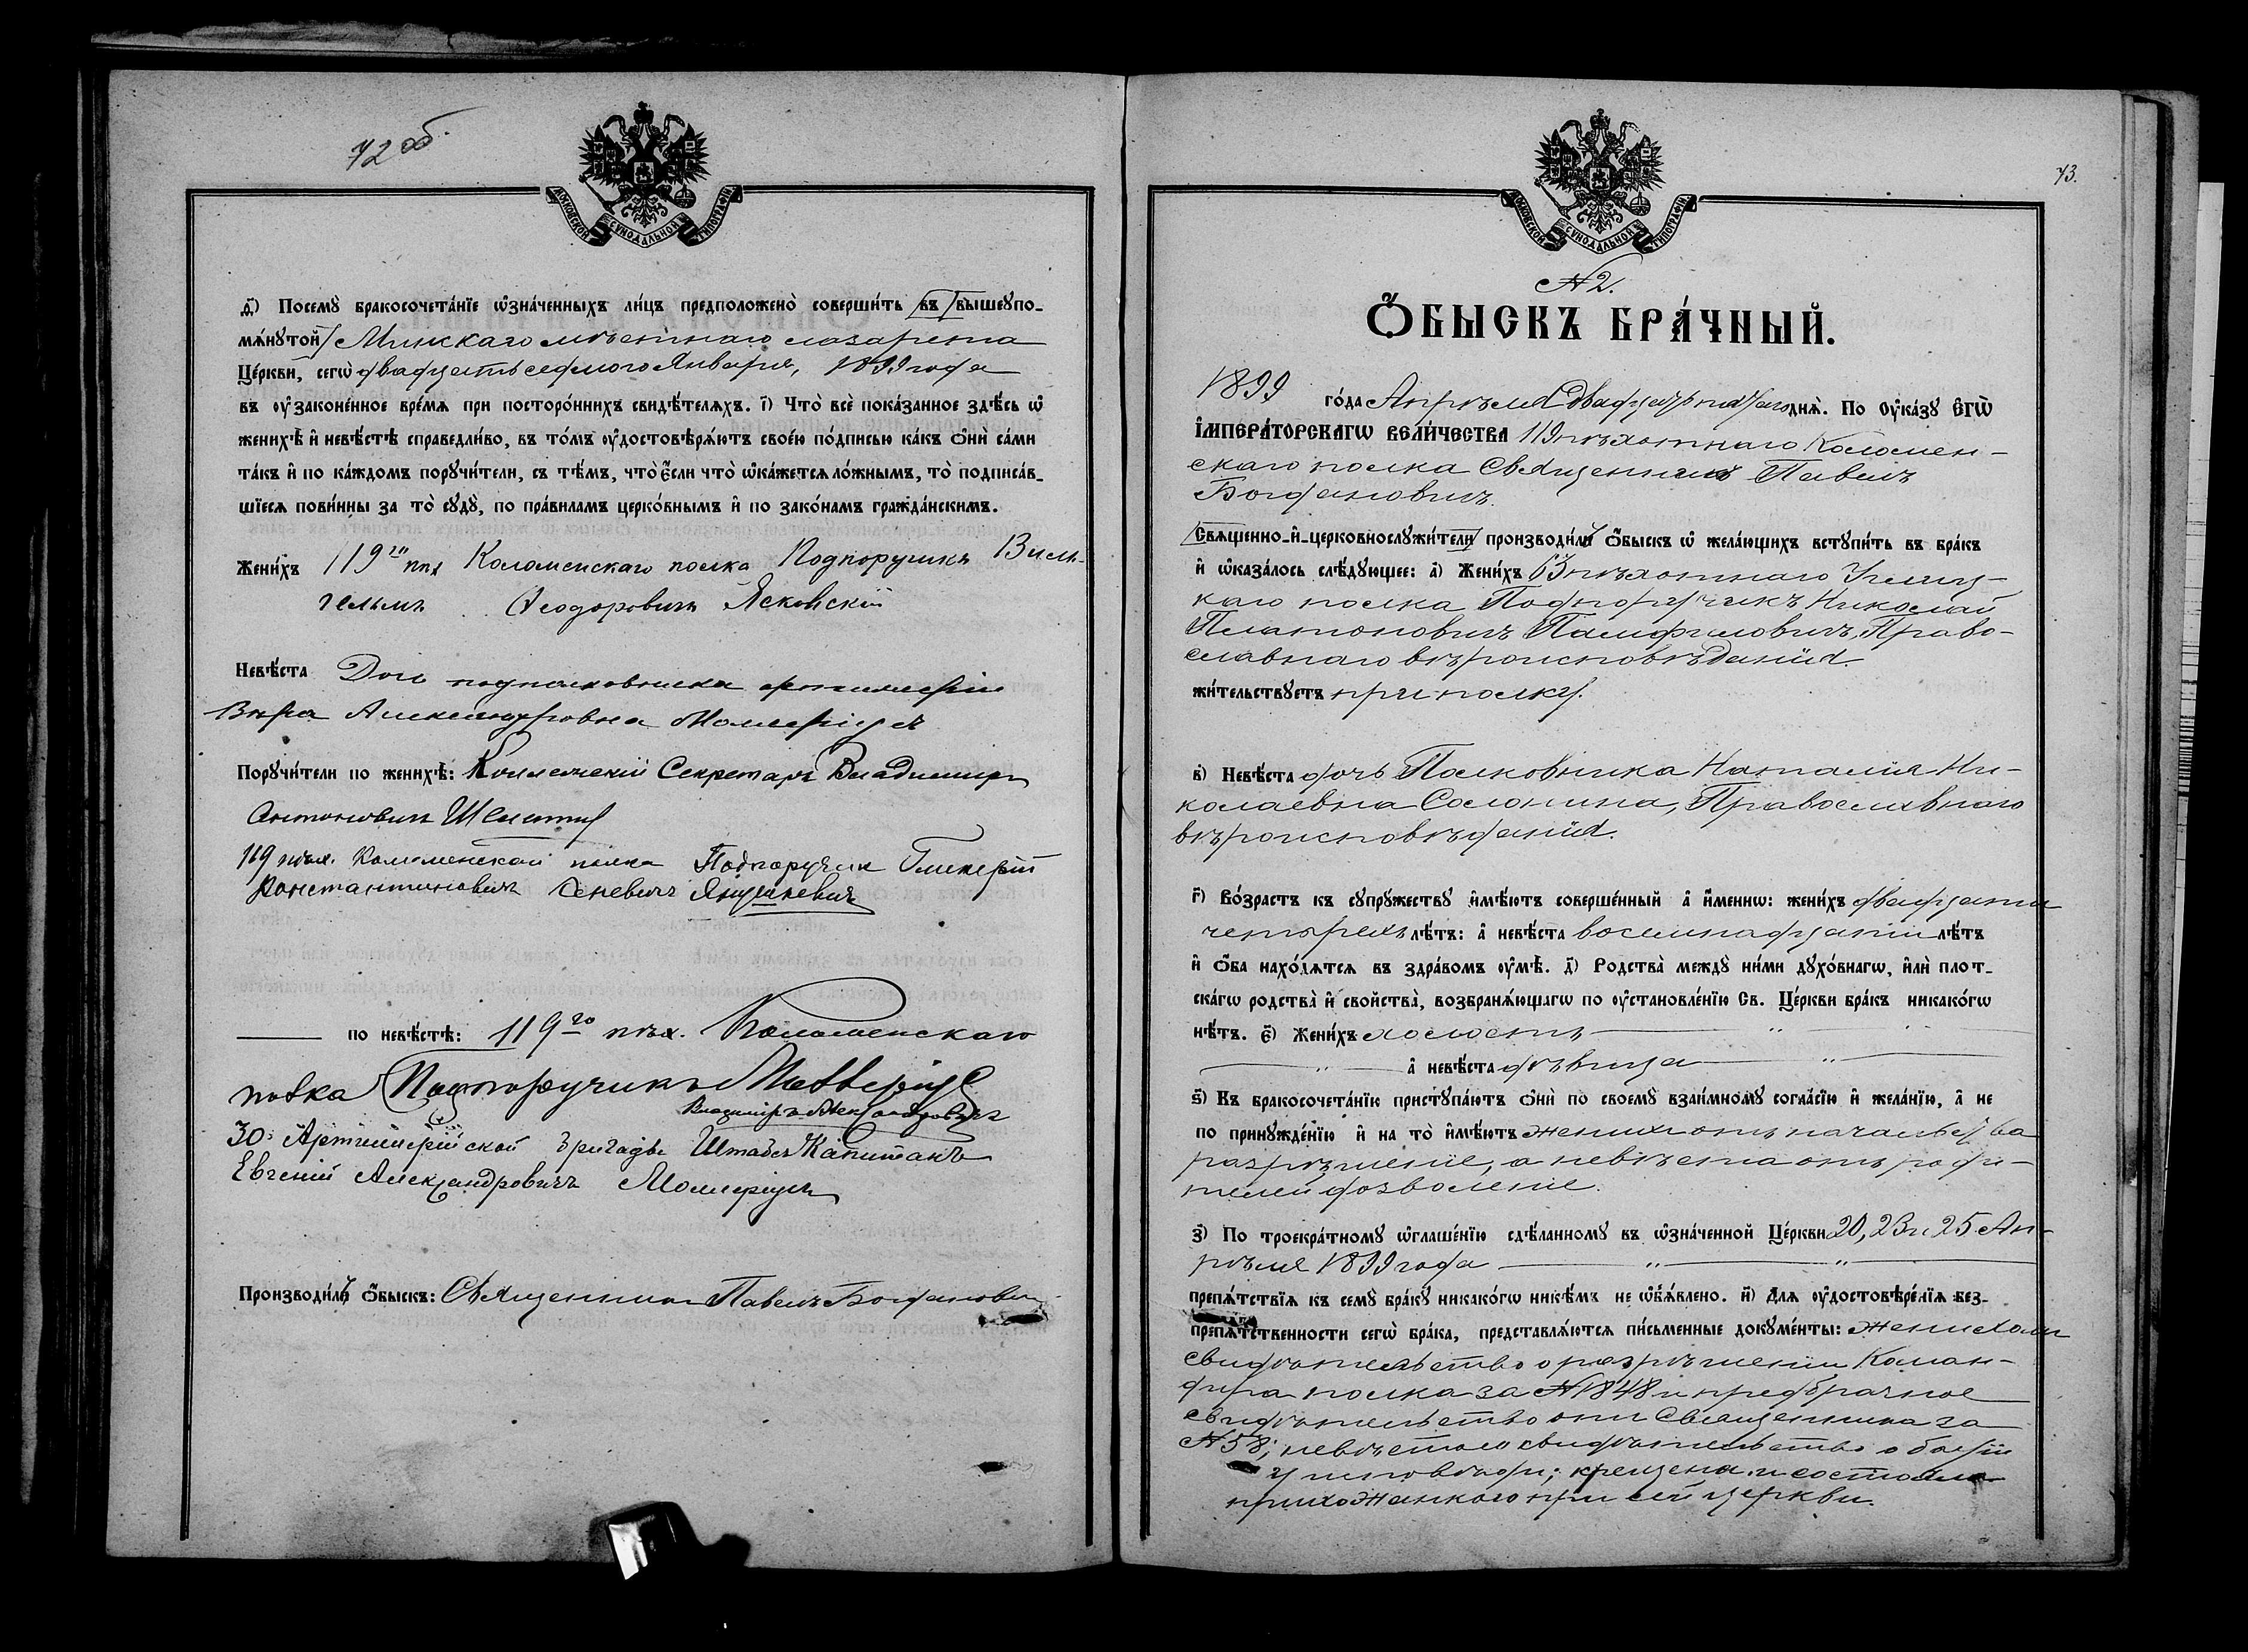 72 об.
МОСКОВСКОЙ СѴНОДАЛЬНОЙ ТИПОГРАФІИ
д҃) Посемꙋ̀ бракосочета́нїе ѡ҆зна́ченныхъ ли́цъ предположено̀ соверши́ть въ вышеꙋпо-
мѧ́нꙋтой Минскаго мѣстнаго лазарета
Це́ркви, сегѡ̀ двадцать седьмого Января, 1899 года
въ ᲂу҆зако́ненное вре́мѧ при посторо́ннихъ свидѣ́телѧхъ. і҃) Что̀ всѐ пока́занное здѣ́сь ѡ҆
женихѣ̀ и҆ невѣ́стѣ справедли́во, въ то́мъ ᲂу҆достовѣрѧ́ютъ свое́ю по́дписью ка́къ ѻ҆нѝ са́ми
та́къ и҆ по ка́ждомъ порꙋчи́тели, съ тѣ́мъ, что̀ є҆́сли что̀ ѡ҆ка́жетсѧ ло́жнымъ, то̀ подписа́в-
шїесѧ пови́нны за то̀ сꙋдꙋ̀, по пра́виламъ церко́внымъ и҆ по зако́намъ гражда́нскимъ.
Жени́хъ 119го пѣх Коломенскаго полка Подпоручикъ Виль-
гельмъ Ѳеодоровичъ Ясковскій
Невѣ́ста Дочь подполковника артиллеріи
Вѣра Александровна Моллеріусъ
Порꙋчи́тели по женихѣ̀: Коллежскій Секретарь Владимиръ
Антоновичъ
119 пѣх. Коломенскаго полка Подпоручикъ Гликерій
Константиновичъ Сеневичъ Янушкевичъ
по невѣ́стѣ: 119го пѣх. Коломенскаго
полка Подпоручикъ Моллеріусъ
Владиміръ Александровичъ
30й Артиллерійской бригады Штабсъ Капитанъ
Евгеній Александровичъ Моллеріусъ
Производи́лъ ѻ҆́быскъ: Священникъ Павелъ Богдановичъ
73.
МОСКОВСКОЙ СѴНОДАЛЬНОЙ ТИПОГРАФІИ
№ 2.
Ѻ҆́БЫСКЪ БРА́ЧНЫЙ.
1899 го́да Апрѣля Двадцать пятаго днѧ̀. По ᲂу҆ка́зꙋ Є҆гѡ̀
І҆мпера́торскагѡ Вели́чества 119 пѣхотнаго Коломен-
скаго полка Священникъ Павелъ
Богдановичъ
Свѧщенно-и҆-церковнослꙋжи́тели производи́лъ ѻ҆́быскъ ѡ҆ жела́ющихъ встꙋпи́ть въ бра́къ
и҆ ѡ҆каза́лось слѣ́дꙋющее: а҃) Жени́хъ 63 пѣхотнаго Углиц-
каго полка Подпоручикъ Николай
Платоновичъ Памфиловичъ, Право-
славнаго вѣроисповѣданія
жи́тельствꙋетъ при полку.
в҃) Невѣ́ста дочь Полковника Наталія Ни-
колаевна Солонина, Православнаго
вѣроисповѣданія.
г҃) Во́зрастъ къ сꙋпрꙋ́жествꙋ и҆мѣ́ютъ соверше́нный а҆ и҆́меннѡ: жени́хъ двадцати
четырехъ лѣ́тъ: а҆ невѣ́ста восемнадцати лѣ́тъ
и҆ ѻ҆́ба нахо́дѧтсѧ въ здра́вомъ ᲂу҆мѣ̀. д҃) Родства̀ междꙋ̀ ни́ми дꙋхо́внагѡ, и҆лѝ плот-
ска́гѡ родства̀ и҆ сво́йства̀, возбранѧ́ющагѡ по ᲂу҆становле́нїю Св. Це́ркви бра́къ никако́гѡ
нѣ́тъ. є҃) Жени́хъ холостъ
а҆ невѣ́ста дѣвица
ѕ҃) Къ бракосочета́нїю пристꙋпа́ютъ ѻ҆нѝ по своемꙋ̀ взаи́мномꙋ согла́сїю и҆ жела́нїю, а҆ не
по принꙋжде́нїю и҆ на то̀ и҆мѣ́ютъ женихъ отъ начальства
разрѣшеніе, а невѣста отъ роди-
телей дозволеніе.
з҃) По троекра́тномꙋ ѡ҆глаше́нїю сдѣ́ланномꙋ въ ѡ҆зна́ченной Це́ркви 20, 23 и 25 Ап-
рѣля 1899 года
препѧ́тствїѧ къ семꙋ̀ бра́кꙋ никако́гѡ никѣ́мъ не ѡ҆б̾ѧ́влено. и҃) Длѧ ᲂу҆достовѣре́нїѧ без-
препѧ́тственности сегѡ̀ бра́ка, представлѧ́ютсѧ пи́сьменные докꙋме́нты: женихомъ
свидѣтельство о разрѣшеніи Коман-
дира полка за № 1848 и предбрачное
свидѣтельство отъ Священника за
№ 58; невѣстою свидѣтельство о бытіи
у исповѣди; крещена и состояла
прихожанкою при сей церкви.